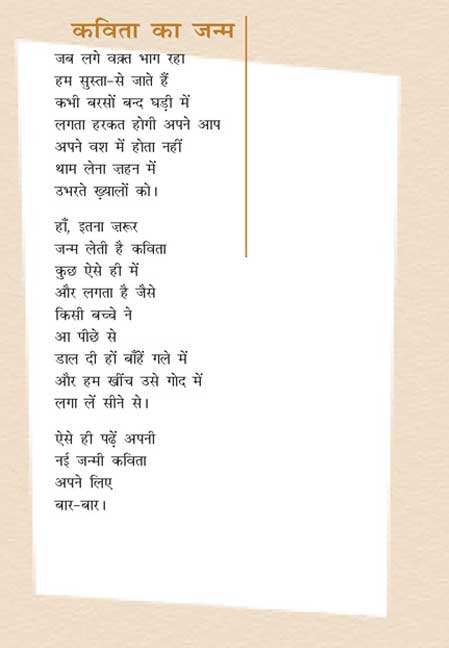 कविता का जन्म
जब लगे वक़्त भाग रहा
हम सुस्ता-से जाते हैं
कभी बरसों बन्द घड़ी में
लगता हरकत होगी अपने आप
अपने वश में होता नहीं
थाम लेना ज़हन में
उभरते ख़्यालों को।
हाँ, इतना ज़रूर
जन्म लेती है कविता
कुछ ऐसे ही में
और लगता है जैसे
किसी बच्चे ने
आ पीछे से
डाल दी हों बाँहें गले में
और हम खींच उसे गोद में
लगा लें सीने से।
ऐसे ही पढ़ें अपनी
नई जन्मी कविता
अपने लिए
बार-बार।